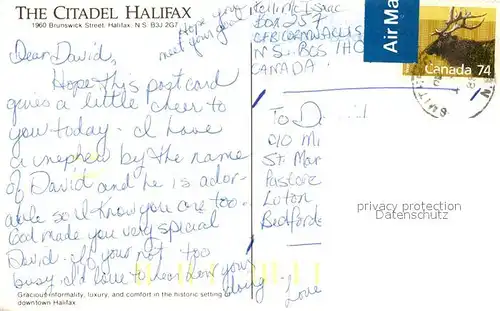 THE CITADEL HALIFAX
1960 Brunswick Street, Halifax, N.S. B3J 2G7
Hope you
meet your goal
Dear David,
Hope this postcard
gives a little cheer to
you today. I have
a nephew by the name
of David and he is ador-
able so I know you are too.
God made you very special
David. If your not too
busy I'd love to hear how your
doing. Love
Gracious informality, luxury, and comfort in the historic setting of
downtown Halifax
Box 257
CFB Cornwallis
N.S. B0S 1H0
CANADA
Air Mail
Canada 74
To D
c/o Mi
St. Mar
Pastora
Luton
Bedfords
privacy protection
Datenschutz